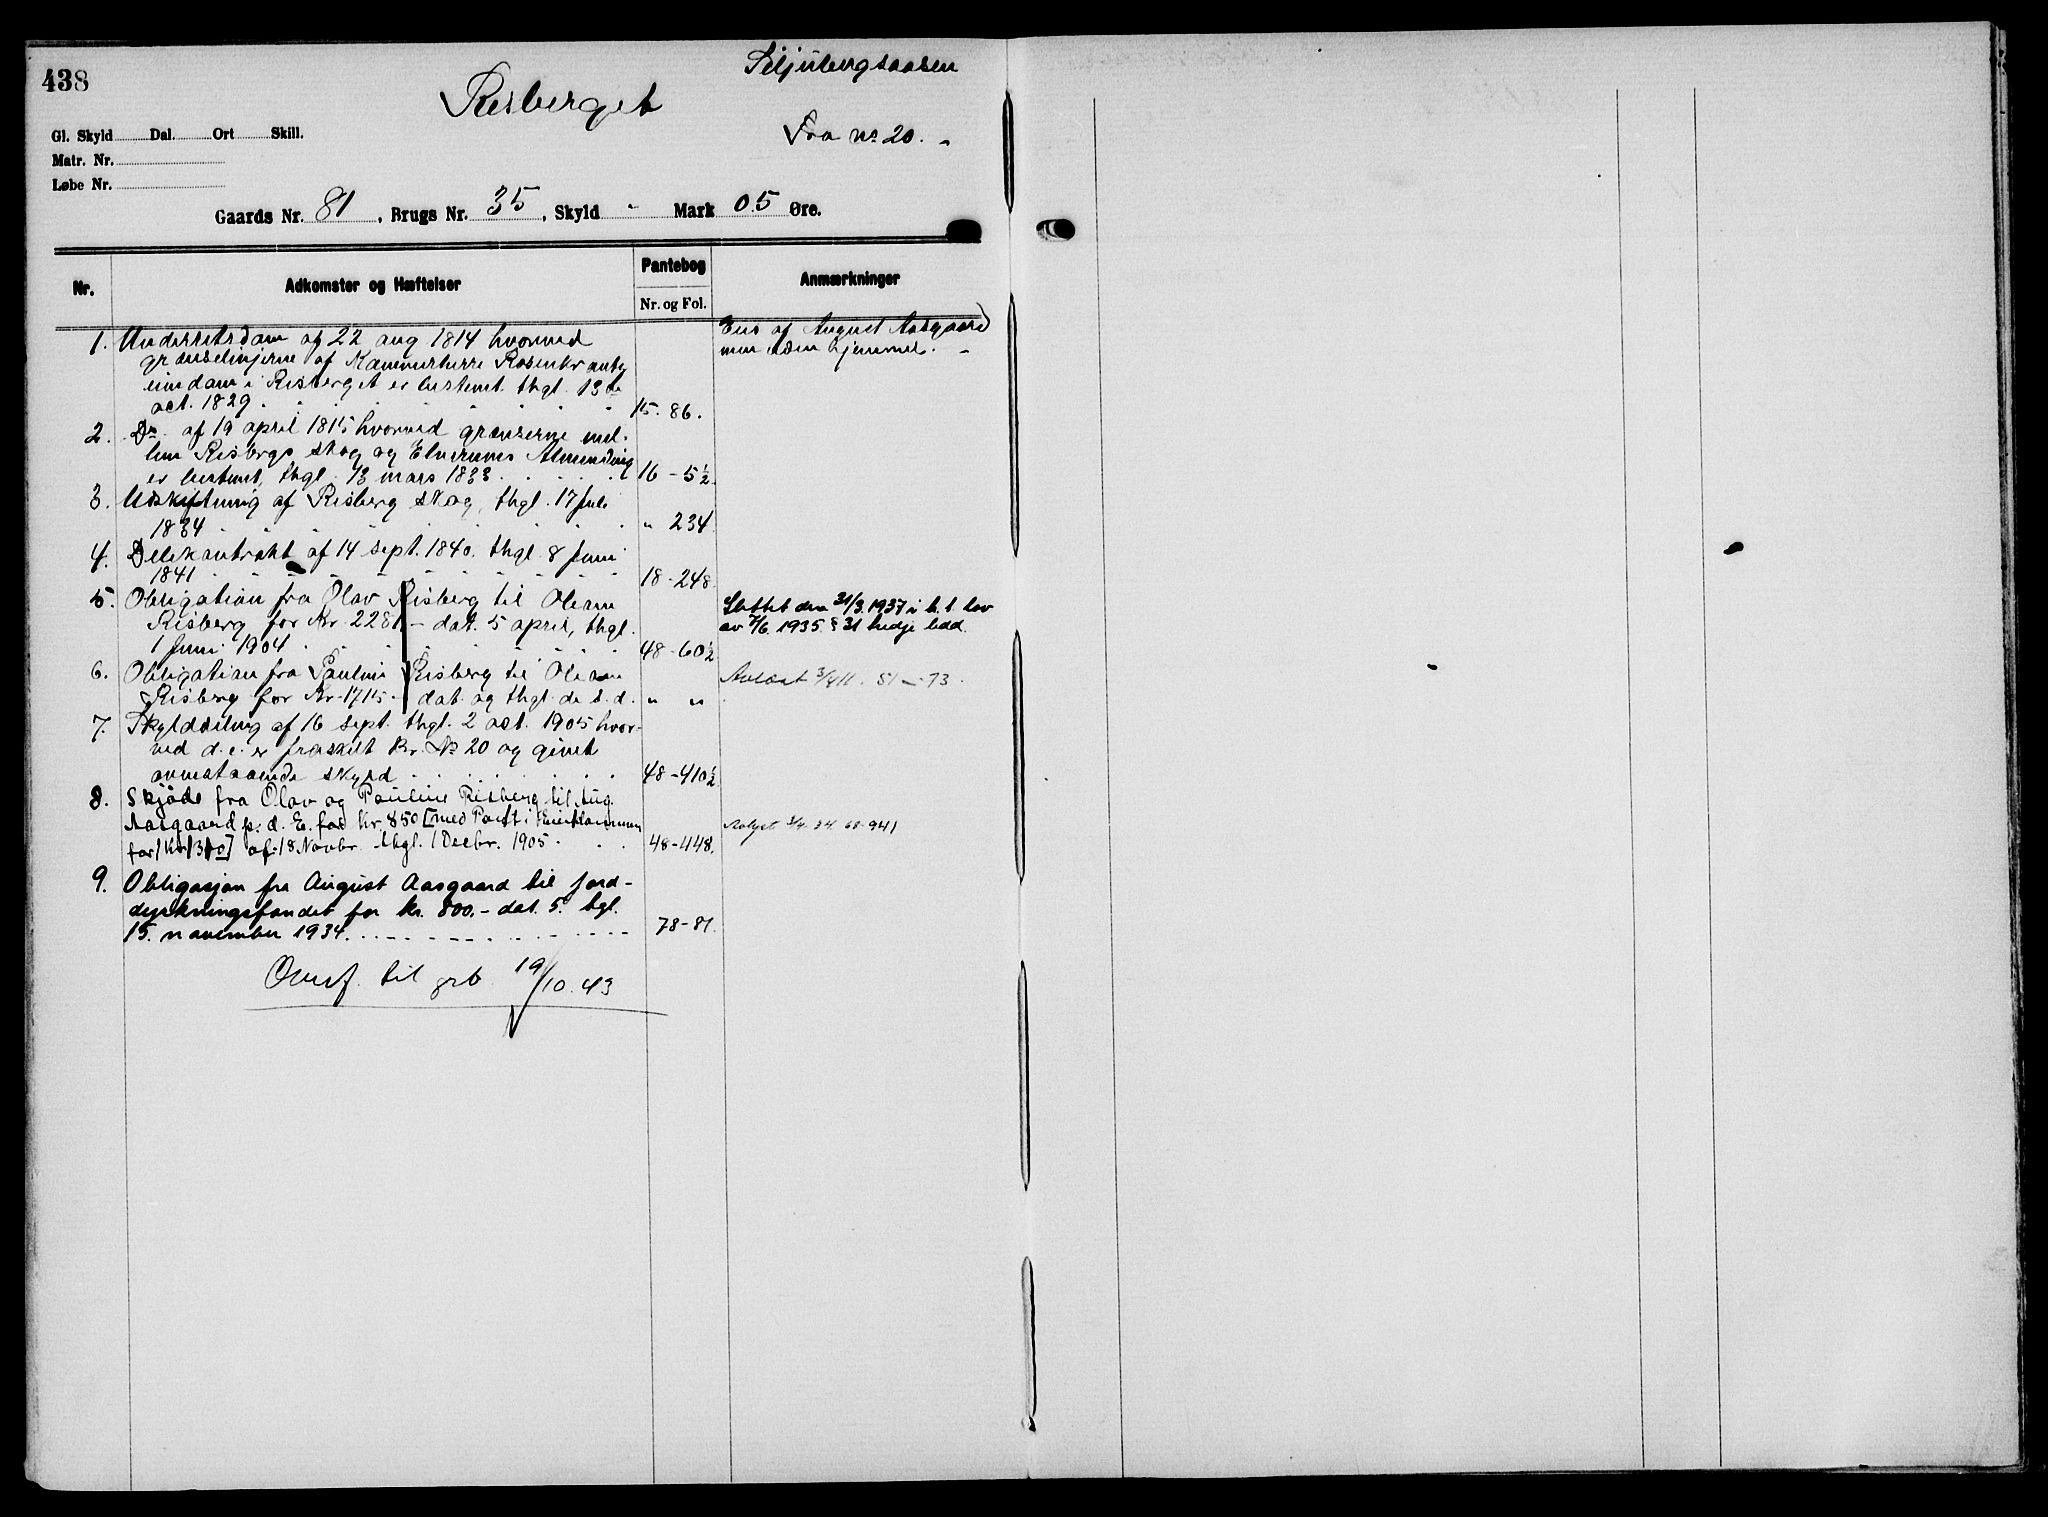 438
Siljubergsaasen
Risberget
Fra No 20. -
Gl. Skyld Dal. Ort Skill.
Matr. Nr.
Løbe Nr.
Gaards Nr. 81, Brugs Nr. 35, Skyld - Mark 05 Øre.
Nr. Adkomster og Hæftelser Pantebog Nr. og Fol. Anmærkninger
1. Underretsdom af 22 aug 1814 hvorved
grænselinjerne af Kammerherre Rosenkrantz
eiendom i Risberget er bestemt. thgl. 13de
oct. 1829 15. 86.
Eies af August Aasgaard
men uden hjemmel. -
2. Do. af 19 april 1815 hvorved grænserne mel-
lem Risbergs skog og Elverums Almending
er bestemt, thgl. 13 mars 1833 16 - 5½
3. Udskiftning af Risberg skog, thgl. 17 Juli
1834 " 234
4. Delekontrakt af 14 sept. 1840. thgl. 8 Juni
1841 18 - 248
5. Obligation fra Olav Risberg til Oliane
Risberg for Kr. 2281 - dat. 5 april, thgl.
1 Juni 1904 48 - 60½
Slettet den 31/3.1937 i h. t. lov
av 7/6. 1935 § 31 tredje ledd.
6. Obligation fra Pauline Risberg til Oliane
Risberg for Kr. 1715 - dat. og thgl. de s. d. " "
Avlæst 3/4 11. 51 - 73.
7. Skylddeling af 16 sept. thgl. 2 oct. 1905 hvor-
ved d. e. er fraskilt Br. No 20 og givet
ovenstaaende skyld 48 - 410½
8. Skjøde fra Olav og Pauline Risberg til Aug.
Aasgaard p. d. E. for Kr. 850 [med Pant i Eiendommen
for Kr 310] af 18 Novbr. thgl. 1 Decbr. 1905. 48 - 448.
Avlyst 3/4. 24. 68-941
9. Obligasjon fra August Aasgaard til Jord-
dyrkningsfondet for kr. 800.- dat. 5. tgl.
15. november 1934. 78 - 81.
Overf. til grb. 19/10.43